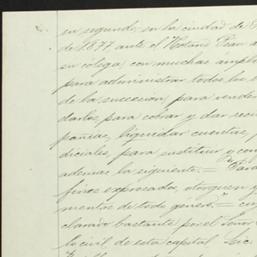 en segundo, en la ciudad de
de 1877, ante el Notario Juan
su colega, con muchas ampl
para administrar todos los b
de la sucesion, para vender
darlos, para cobrar y dar reci
pañias, liquidar cuentas,
diciales, para sustituir y con
ademas la siguiente. = "Para
fines expresados, otorguen y
mentos de todo género. = cu
clarado bastante por el Señor
lo civil de esta capital Lic.